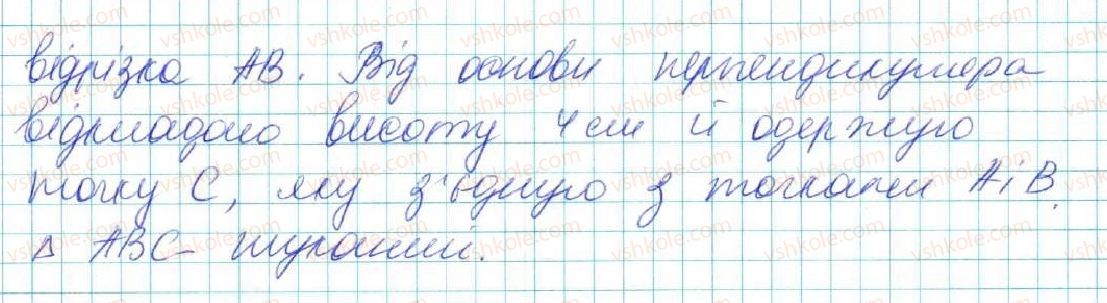 відрізка AB. Від основи перпендикуляра
відкладаю висоту 4 см й одержую
точку C, яку з'єдную з точками A і B.
△ ABC - шуканий.